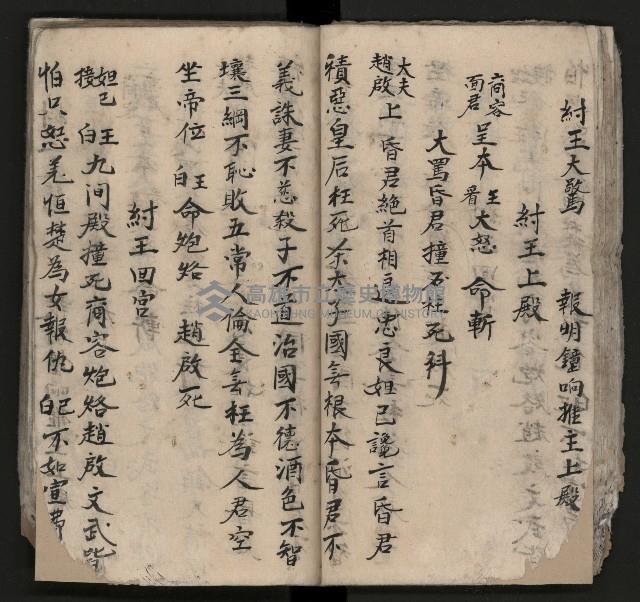 紂王大驚 報明鐘响推主上殿
紂王上殿
商容面君 呈本 王看 大怒 命斬
大罵昏君撞石柱死科
大夫趙啟上 昏君絶首相良忠良妲己讒言昏君
積惡皇后枉死杀太子國無根本昏君不
義誅妻不慈殺子不道治國不德酒色不智
壞三綱不恥敗五常人倫全無枉為人君空
坐帝位 王白 命炮烙 趙啟死
紂王回宮
妲己接 王白 九间殿撞死商容炮烙趙啟文武皆
怕只恐姜恒楚為女報仇 己白 不如宣費
高雄市立歷史博物館
KAOHSIUNG MUSEUM OF HISTORY